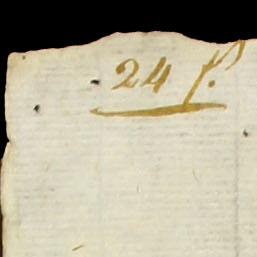 24 f.